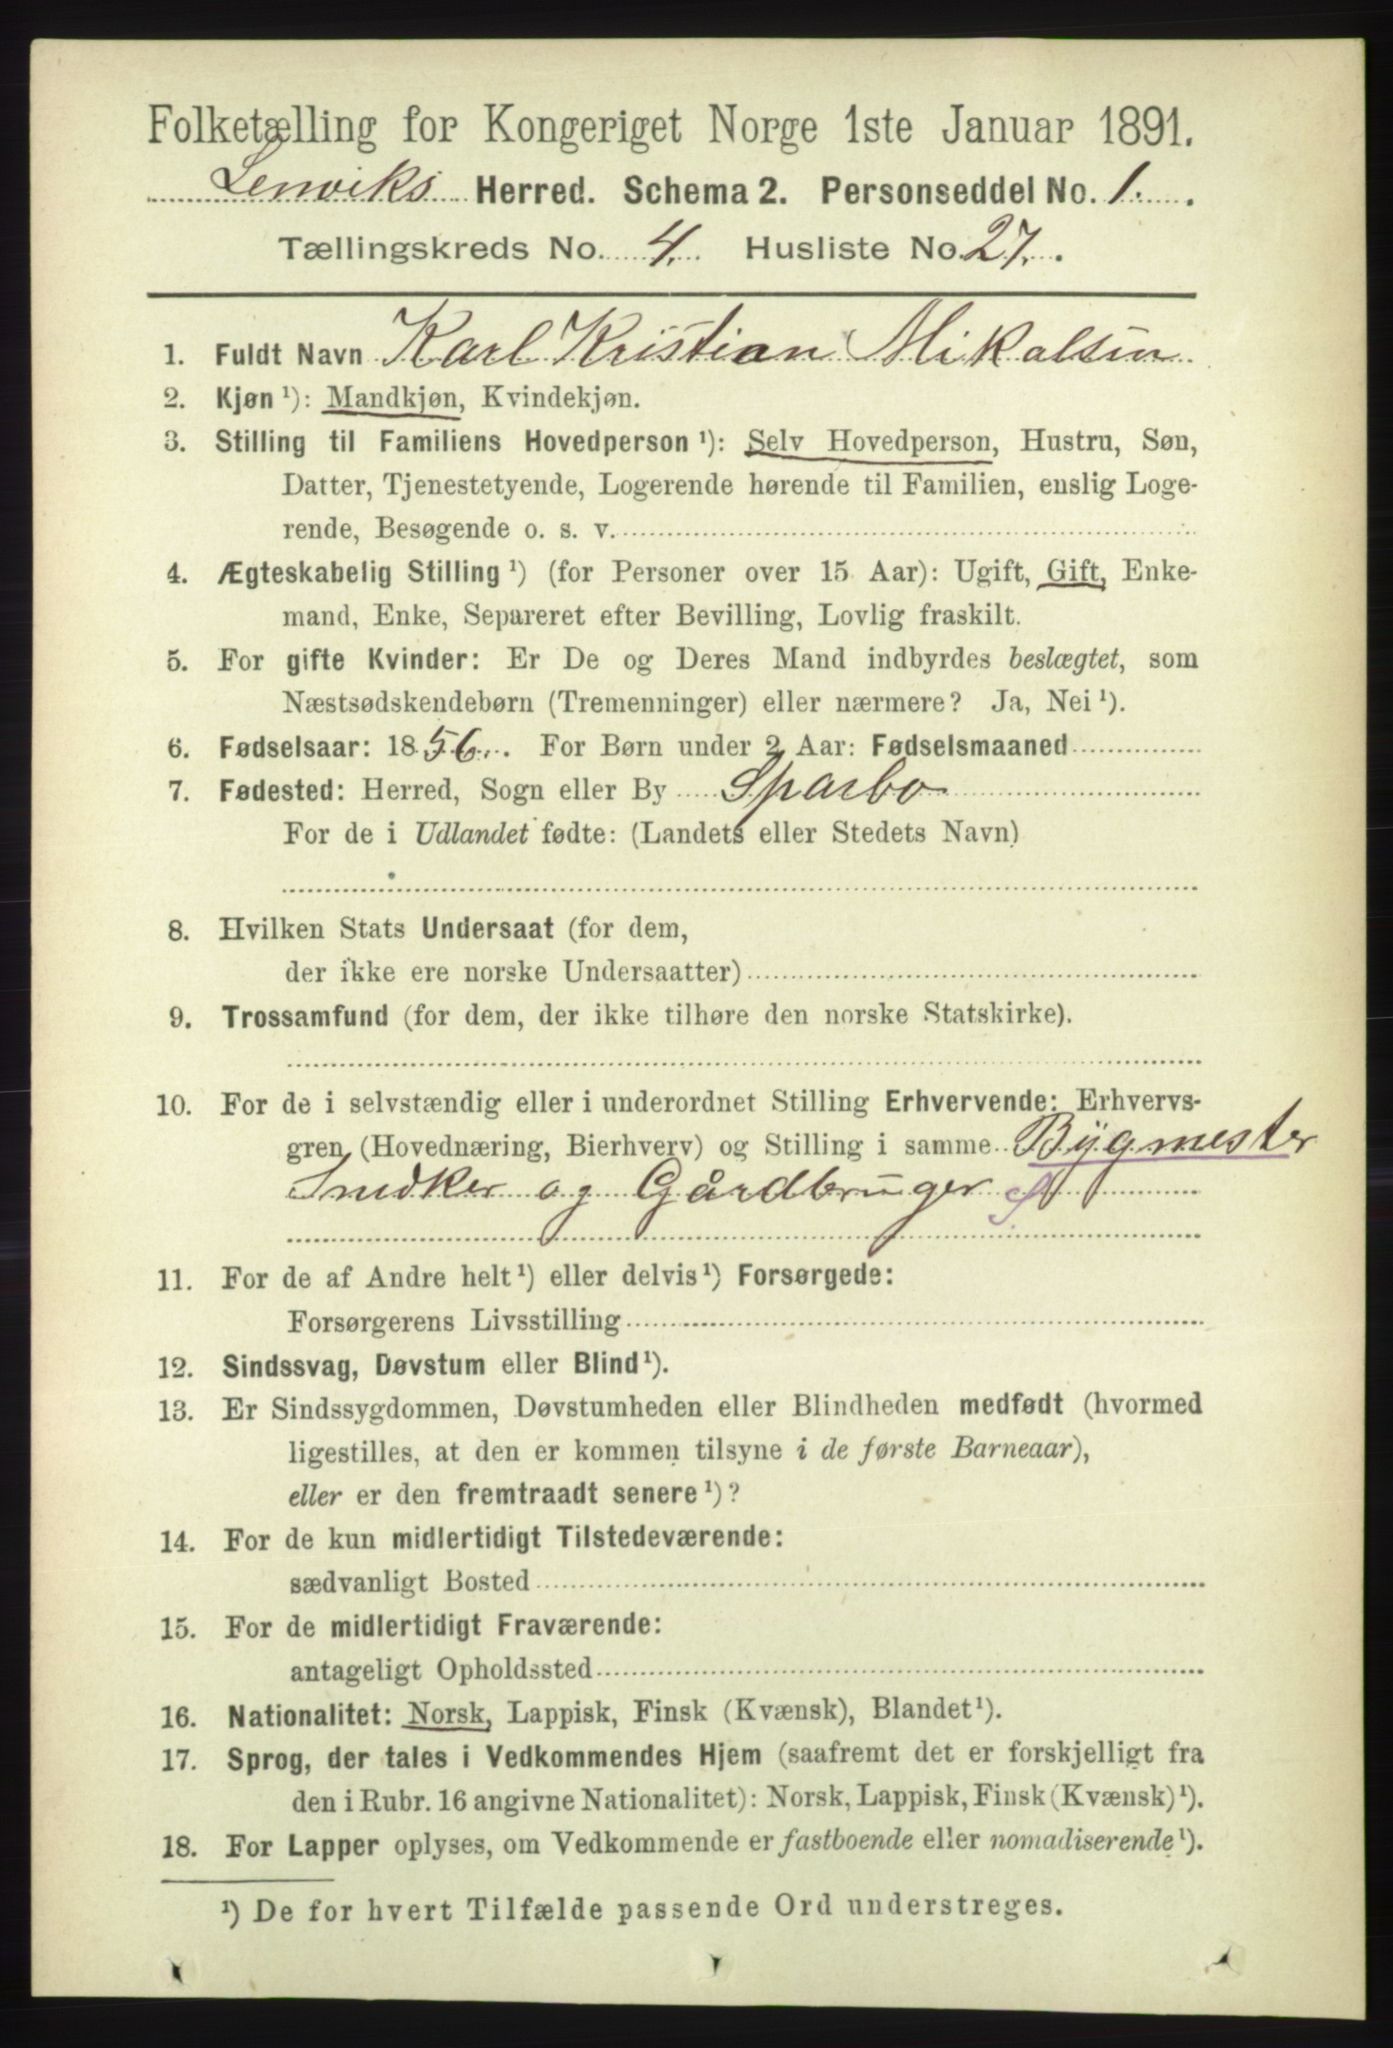 Folketælling for Kongeriget Norge 1ste Januar 1891.
Lenviks Herred. Schema 2. Personseddel No. 1.
Tællingskreds No. 4. Husliste No. 27.
1. Fuldt Navn Karl Kristian Mikalsen
2. Kjøn ¹): Mandkjøn, Kvindekjøn.
3. Stilling til Familiens Hovedperson ¹): Selv Hovedperson, Hustru, Søn,
Datter, Tjenestetyende, Logerende hørende til Familien, enslig Loge-
rende, Besøgende o. s. v.
4. Ægteskabelig Stilling ¹) (for Personer over 15 Aar): Ugift, Gift, Enke-
mand, Enke, Separeret efter Bevilling, Lovlig fraskilt.
5. For gifte Kvinder: Er De og Deres Mand indbyrdes beslægtet, som
Næstsødskendebørn (Tremenninger) eller nærmere? Ja, Nei ¹).
6. Fødselsaar: 1856. For Børn under 2 Aar: Fødselsmaaned
7. Fødested: Herred, Sogn eller By Sparbo
For de i Udlandet fødte: (Landets eller Stedets Navn)
8. Hvilken Stats Undersaat (for dem,
der ikke ere norske Undersaatter)
9. Trossamfund (for dem, der ikke tilhøre den norske Statskirke).
10. For de i selvstændig eller i underordnet Stilling Erhvervende: Erhvervs-
gren (Hovednæring, Bierhverv) og Stilling i samme Bygmester
Snedker og Gårdbruger S
11. For de af Andre helt ¹) eller delvis ¹) Forsørgede:
Forsørgerens Livsstilling
12. Sindssvag, Døvstum eller Blind ¹).
13. Er Sindssygdommen, Døvstumheden eller Blindheden medfødt (hvormed
ligestilles, at den er kommen tilsyne i de første Barneaar),
eller er den fremtraadt senere ¹)?
14. For de kun midlertidigt Tilstedeværende:
sædvanligt Bosted
15. For de midlertidigt Fraværende:
antageligt Opholdssted
16. Nationalitet: Norsk, Lappisk, Finsk (Kvænsk), Blandet ¹).
17. Sprog, der tales i Vedkommendes Hjem (saafremt det er forskjelligt fra
den i Rubr. 16 angivne Nationalitet): Norsk, Lappisk, Finsk (Kvænsk) ¹).
18. For Lapper oplyses, om Vedkommende er fastboende eller nomadiserende ¹).
¹) De for hvert Tilfælde passende Ord understreges.